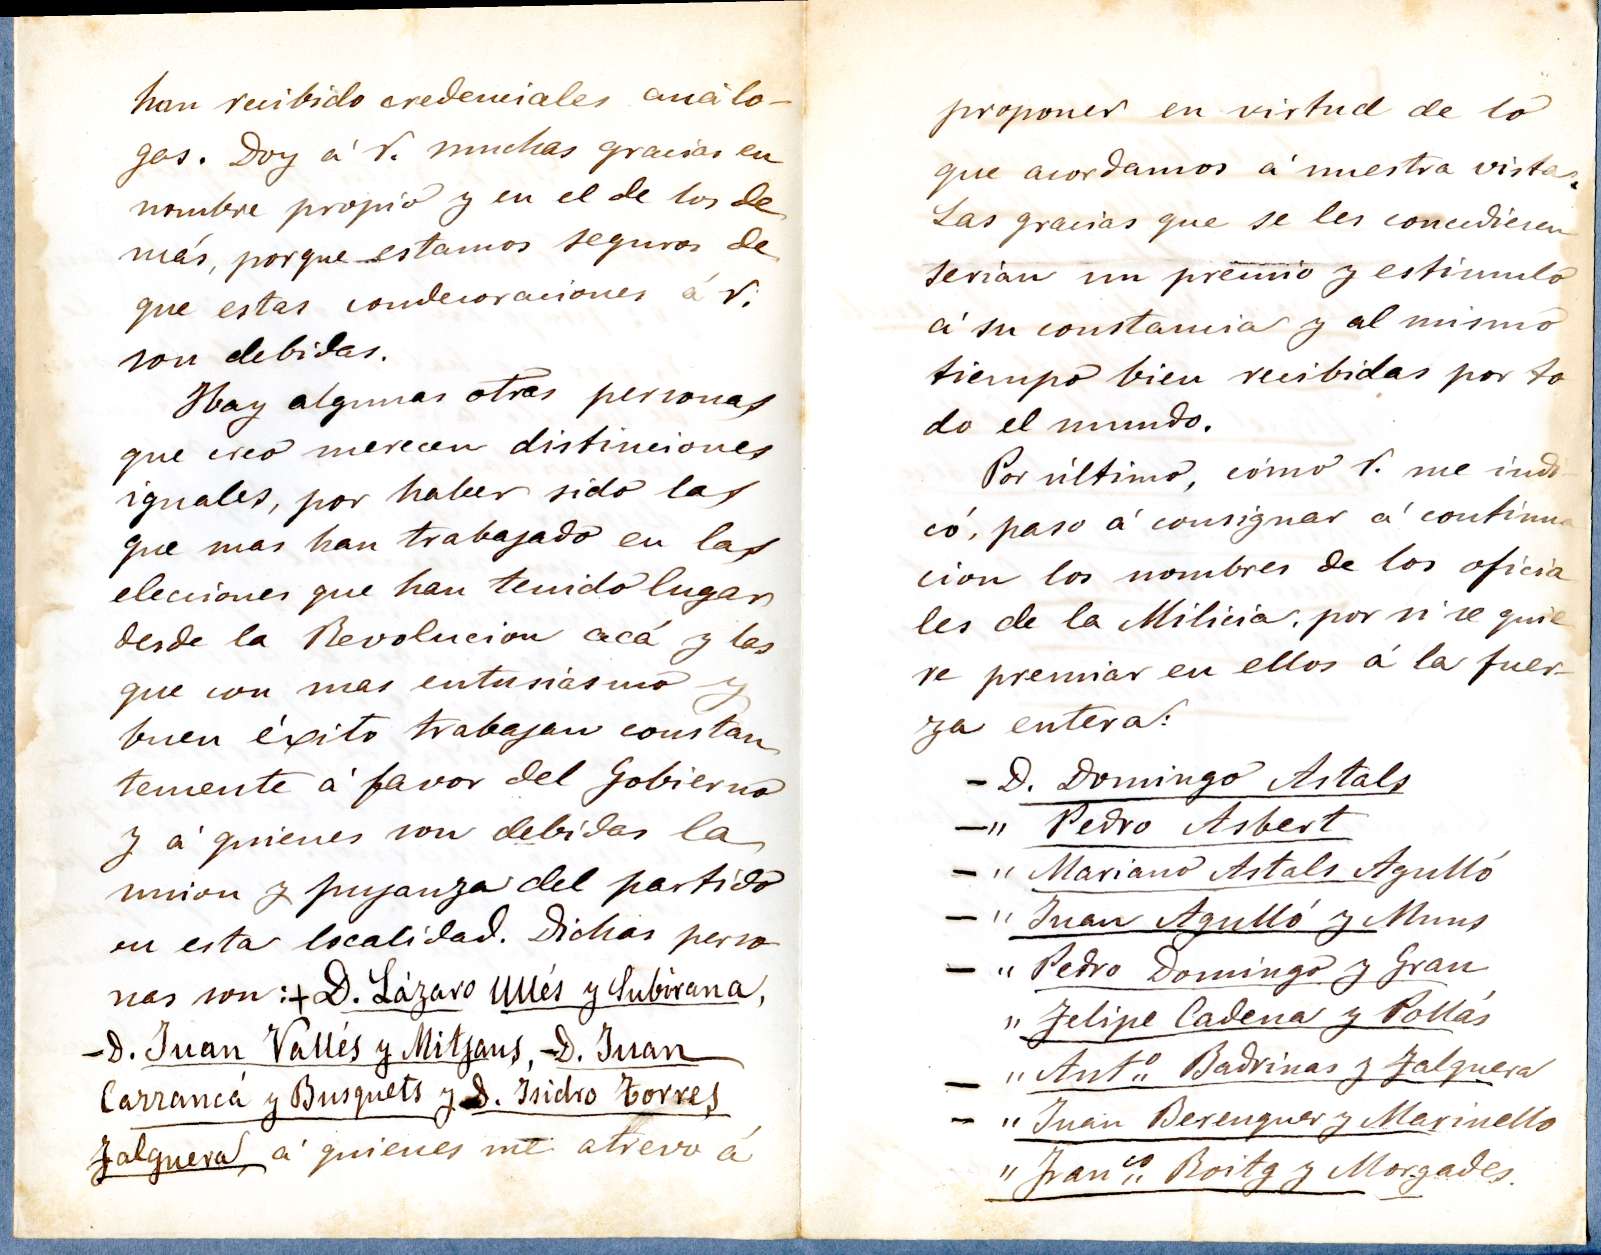 han recibido credenciales análo-
gas. Doy á V. muchas gracias en
nombre propio y en el de los de
más, porque estamos seguros de
que estas condecoraciones á V.
son debidas.
Hay algunas otras personas
que creo merecen distinciones
iguales, por haber sido las
que mas han trabajado en las
elecciones que han tenido lugar
desde la Revolucion acá y las
que con mas entusiásmo y
buen éxito trabajan constan
temente á favor del Gobierno
y á quienes son debidas la
union y pujanza del partido
en esta localidad. Dichas perso
nas son:+ D. Lázaro Ullés y Subirana,
-D. Juan Vallés y Mitjans, -D. Juan
Carrancá y Busquets y D. Isidro Torres
Falguera, á quienes me atrevo á
proponer en virtud de lo
que acordamos á nuestra vista.
Las gracias que se les concediesen
serian un premio y estimulo
á su constancia y al mismo
tiempo bien recibidas por to
do el mundo.
Por último, cómo V. me indi-
có, paso á consignar á continua
cion los nombres de los oficia
les de la Milicia, por si se quie
re premiar en ellos á la fuer-
za entera:
- D. Domingo Astals
- " Pedro Asbert
- " Mariano Astals Agulló
- " Juan Agulló y Muns
- " Pedro Domingo y Gran
" Felipe Cadena y Pollás
- " Ant.º Badrinas y Falguera
- " Juan Berenguer y Marinello
" Fran.co Roitg y Morgades.